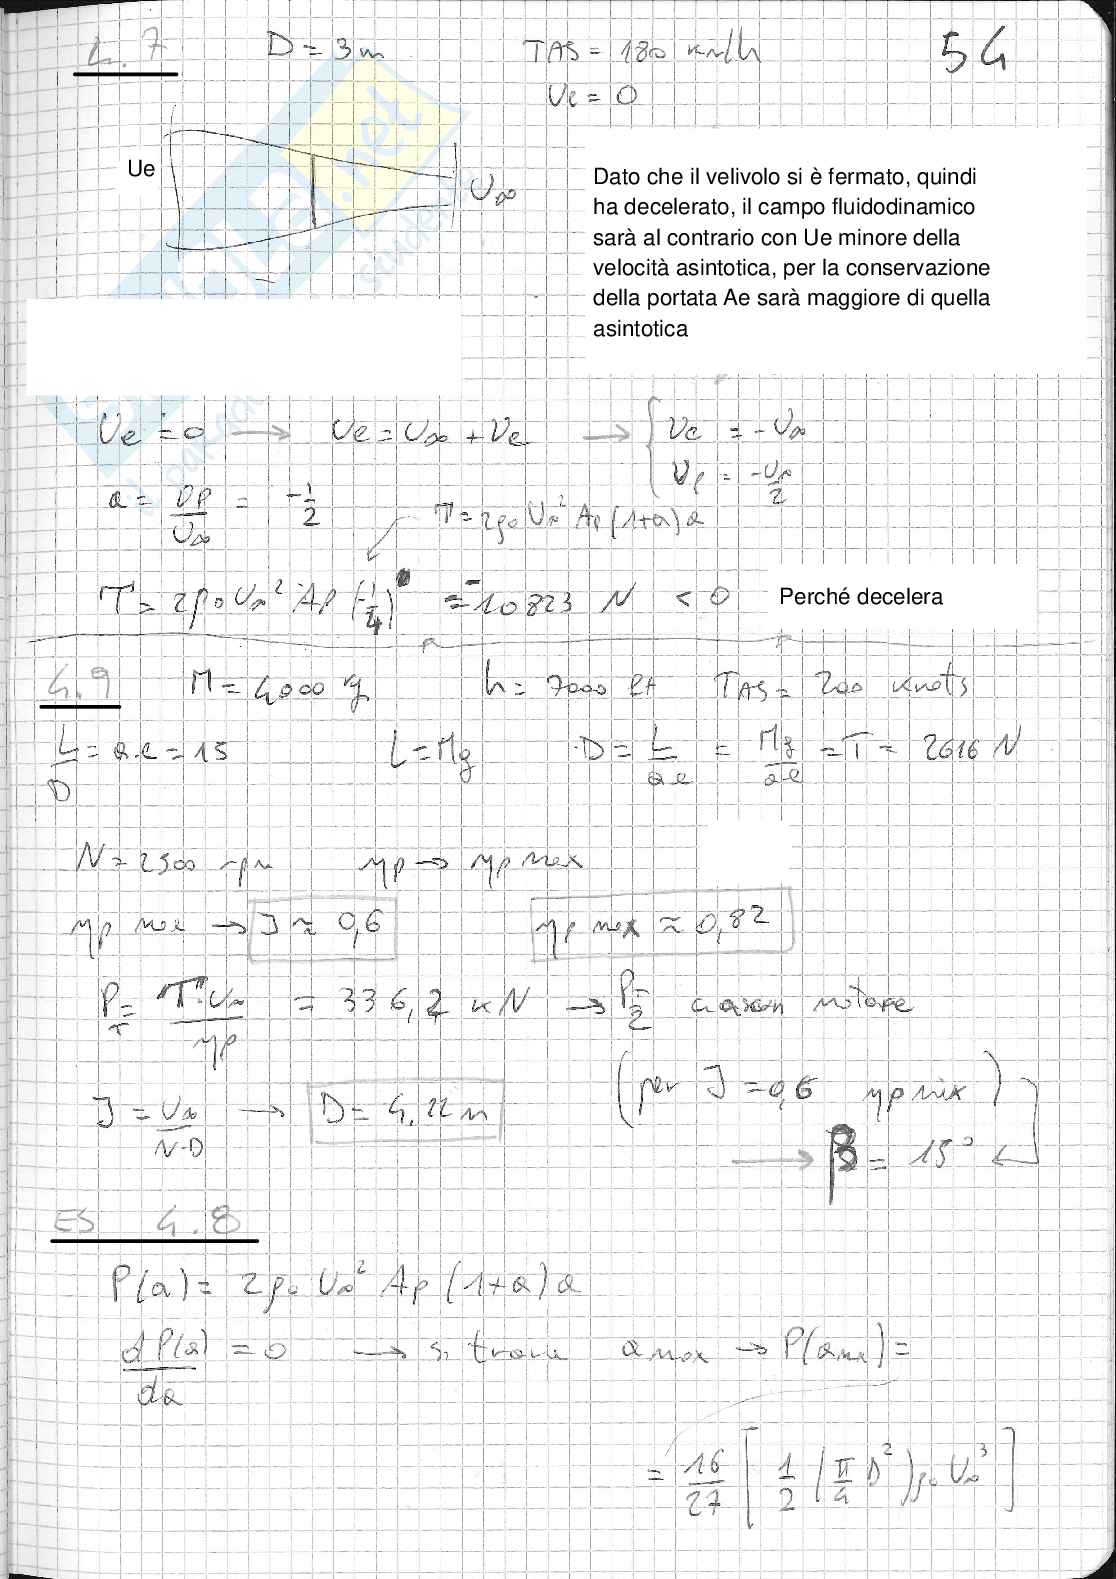 4.7 D = 3m TAS = 180 km/h 54
Ve = 0
Ue
U∞
Dato che il velivolo si è fermato, quindi
ha decelerato, il campo fluidodinamico
sarà al contrario con Ue minore della
velocità asintotica, per la conservazione
della portata Ae sarà maggiore di quella
asintotica
Ue = 0 → Ue = U∞ + Ve → { Ve = -U∞
Vp = -U∞/2
a = Vp/U∞ = -1/2
T = 2ρ₀ U∞² Ap (1+a) a
T = 2ρ₀ U∞² Ap (-1/4) = -10823 N < 0 Perché decelera
4.9 M = 4000 kg h = 7000 ft TAS = 200 knots
L/D = ae = 15 L = Mg D = L/ae = Mg/ae = T = 2616 N
N = 2500 rpm ηp → ηp max
ηp max → J ≈ 0,6 ηp max ≈ 0,82
P_T = T·U∞/ηp = 336,2 kN → P_T/2 ciascun motore
J = U∞/N·D → D = 4,22 m (per J = 0,6 ηp max)
→ β = 15°
ES 4.8
P(a) = 2ρ₀ U∞² Ap (1+a) a
dP(a)/da = 0 → si trova a max → P(a max) =
= 16/27 [ 1/2 (π/4 D²) ρ₀ U∞³ ]